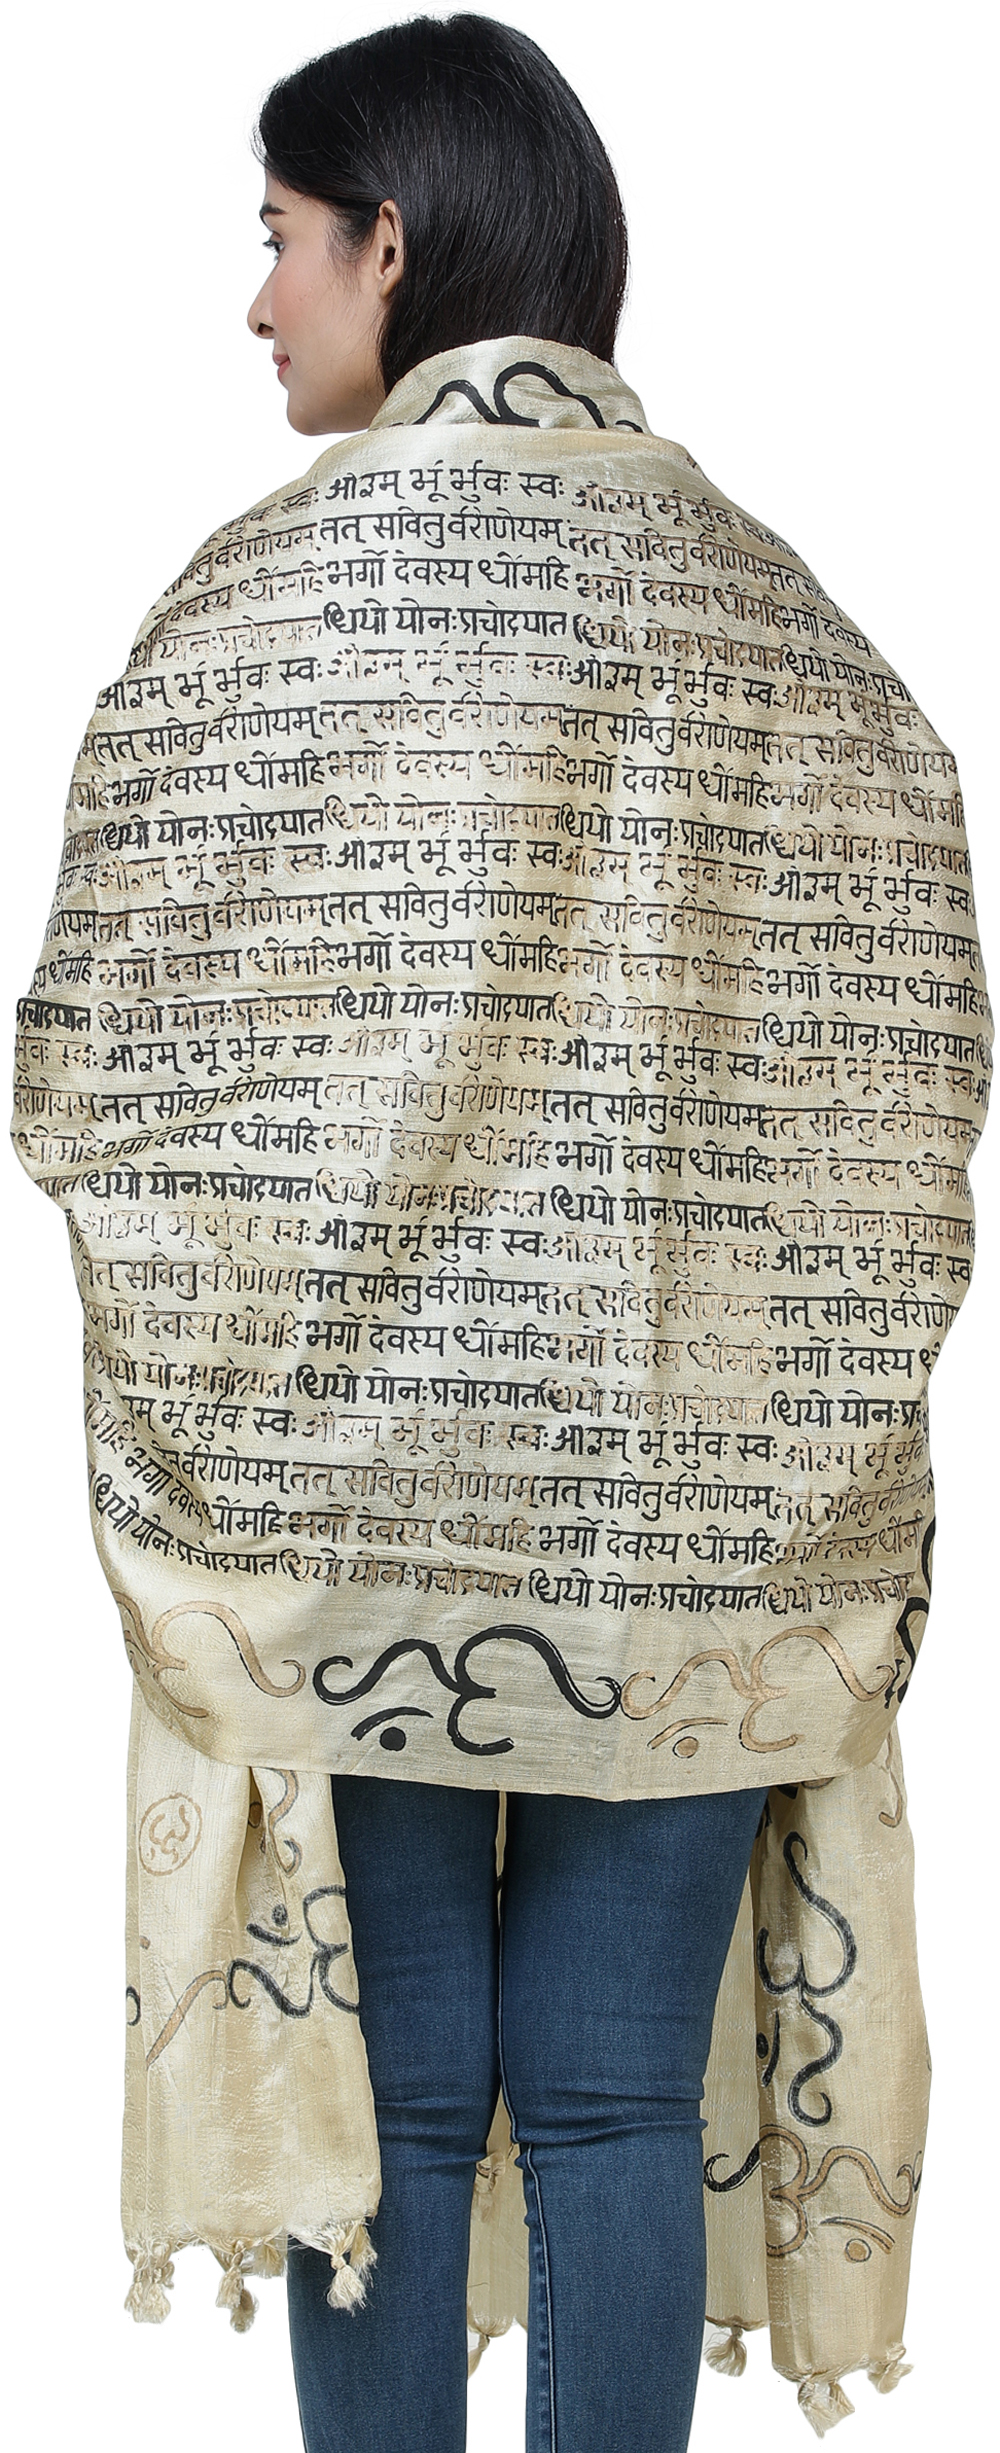 स्वः ओ३म् र्भू र्भुवः स्वः ओ३म् र्भू र्भुवः
सवितुर्वराणेयम् तत् सवितुर्वराणेयम् तत् सवितुर्वराणेयम् तत्
देवस्य धींमहि भर्गो देवस्य धींमहि भर्गो देवस्य धींमहि भर्गो देवस्य
योनःप्रचोदयात धियो योनःप्रचोदयात धियो योनःप्रचोदयात धियो योनःप्रचो
ओ३म् र्भू र्भुवः स्वः ओ३म् र्भू र्भुवः स्वः ओ३म् र्भू र्भुवः स्वः ओ३म् र्भू र्भुवः
तत् सवितुर्वराणेयम् तत् सवितुर्वराणेयम् तत् सवितुर्वराणेयम् तत् सवितुर्वराणेयम्
भर्गो देवस्य धींमहि भर्गो देवस्य धींमहि भर्गो देवस्य धींमहि भर्गो देवस्य धींमहि
धियो योनःप्रचोदयात धियो योनःप्रचोदयात धियो योनःप्रचोदयात धियो योनःप्रचोदयात
स्वः ओ३म् र्भू र्भुवः स्वः ओ३म् र्भू र्भुवः स्वः ओ३म् र्भू र्भुवः स्वः ओ३म् र्भू र्भुवः स्वः
तत् सवितुर्वराणेयम् तत् सवितुर्वराणेयम् तत् सवितुर्वराणेयम् तत् सवितुर्वराणेयम्
धींमहि भर्गो देवस्य धींमहि भर्गो देवस्य धींमहि भर्गो देवस्य धींमहि भर्गो देवस्य धींमहि
प्रचोदयात धियो योनःप्रचोदयात धियो योनःप्रचोदयात धियो योनःप्रचोदयात धियो योनःप्रचोदयात
स्वः ओ३म् र्भू र्भुवः स्वः ओ३म् र्भू र्भुवः स्वः ओ३म् र्भू र्भुवः स्वः ओ३म् र्भू र्भुवः स्वः
र्वराणेयम् तत् सवितुर्वराणेयम् तत् सवितुर्वराणेयम् तत् सवितुर्वराणेयम् तत् सवितुर्वराणेयम्
धींमहि भर्गो देवस्य धींमहि भर्गो देवस्य धींमहि भर्गो देवस्य धींमहि भर्गो देवस्य धींमहि
धियो योनःप्रचोदयात धियो योनःप्रचोदयात धियो योनःप्रचोदयात धियो योनःप्रचोदयात
ओ३म् र्भू र्भुवः स्वः ओ३म् र्भू र्भुवः स्वः ओ३म् र्भू र्भुवः स्वः ओ३म् र्भू र्भुवः स्व
तत् सवितुर्वराणेयम् तत् सवितुर्वराणेयम् तत् सवितुर्वराणेयम् तत् सवितुर्वराणे
भर्गो देवस्य धींमहि भर्गो देवस्य धींमहि भर्गो देवस्य धींमहि भर्गो देवस्य
योनःप्रचोदयात धियो योनःप्रचोदयात धियो योनःप्रचोदयात धियो योनःप्र
र्भू र्भुवः स्वः ओ३म् र्भू र्भुवः स्वः ओ३म् र्भू र्भुवः स्वः ओ३म् र्भू र्भुवः
र्वराणेयम् तत् सवितुर्वराणेयम् तत् सवितुर्वराणेयम् तत् सवितुर्वराणे
भर्गो देवस्य धींमहि भर्गो देवस्य धींमहि भर्गो देवस्य धींमहि भर्गो देवस्य धींमहि
धियो योनःप्रचोदयात धियो योनःप्रचोदयात धियो योनःप्रचोदयात धियो योनःप्रचोद
ॐ ॐ